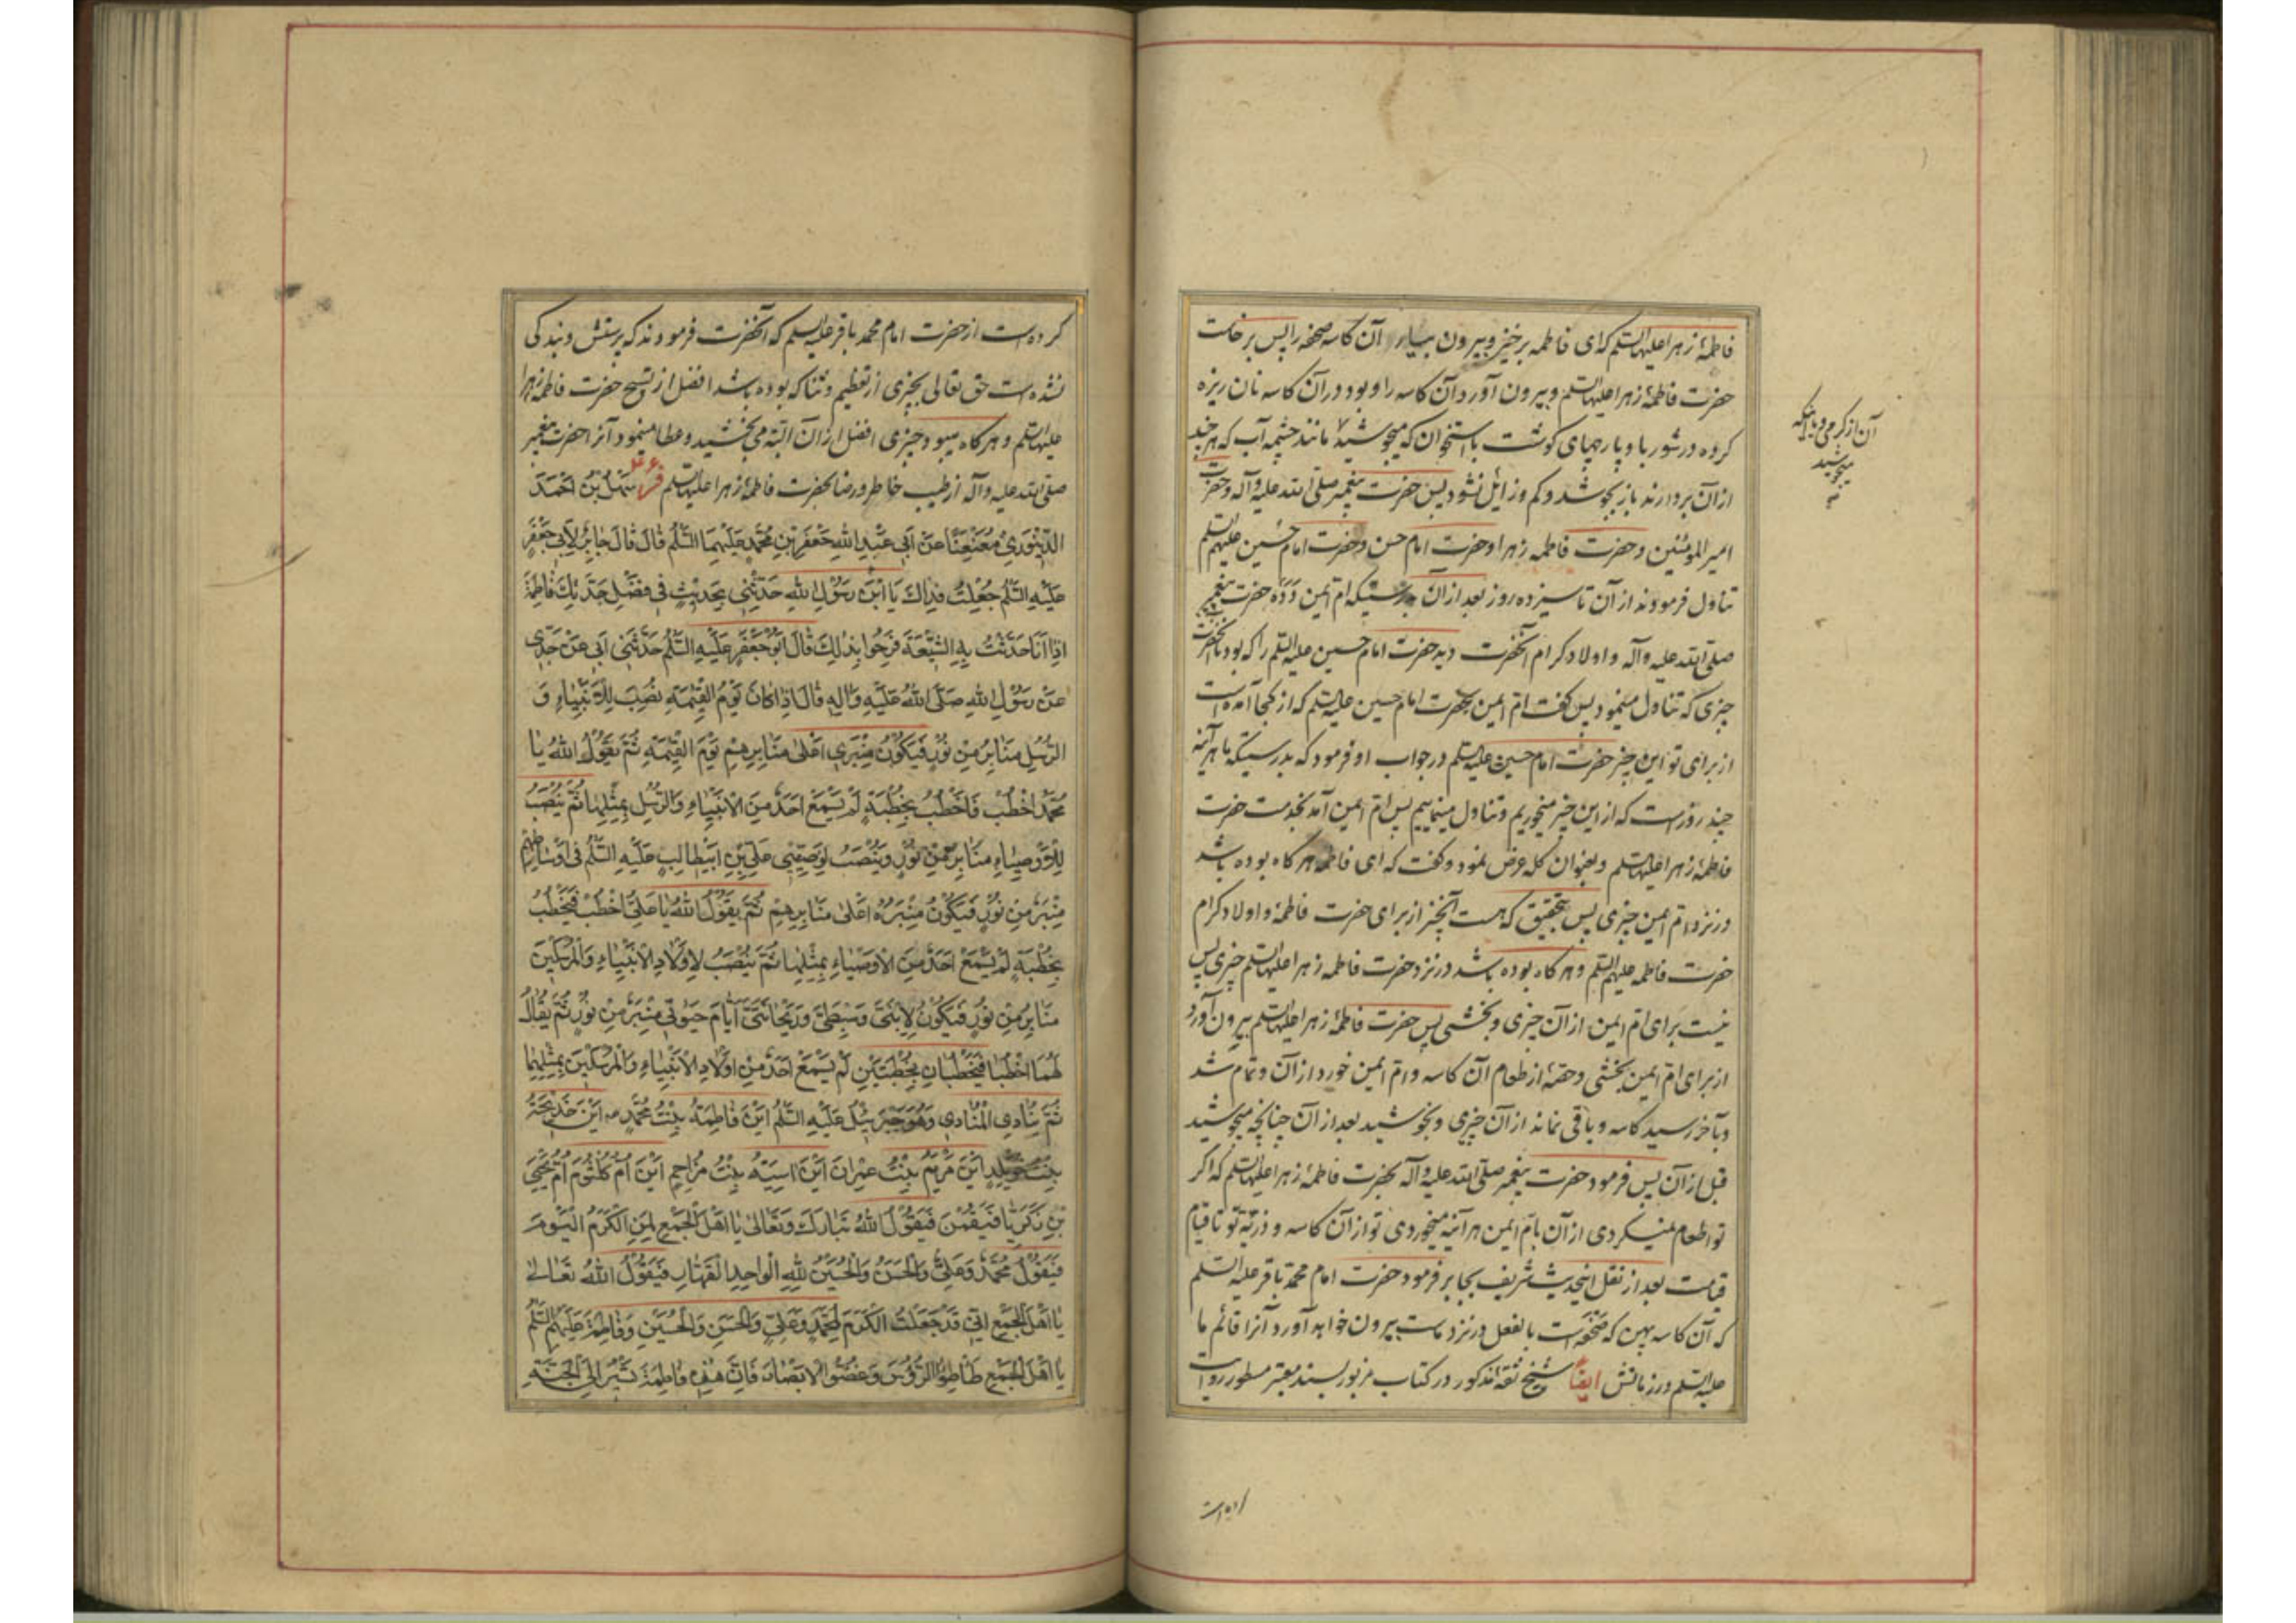 فاطمهٔ زهرا علیها السلم که ای فاطمه برخیز و بیرون بیار آن کاسه صحفه را پس برخاست
حضرت فاطمهٔ زهرا علیها السلم و بیرون آورد آن کاسه را و بود در آن کاسه نان ریزه
کرده در شوربا و پارچهای کوشت با استخوان که میجوشید مانند چشمه آب که هر چند
آن از کرمی و یا اینکه
میجوشید
از آن بردارند باز بجوشد و کم و زایل نشود پس حضرت پیغمبر صلی الله علیه وآله و حضرت
امیر المؤمنین و حضرت فاطمه زهرا و حضرت امام حسن و حضرت امام حسین علیهم السلم
تناول فرمودند از آن تا سیزده روز بعد از آن بدرستیکه ام ایمن دده حضرت پیغمبر
صلی الله علیه وآله و اولاد کرام آنحضرت دید حضرت امام حسین علیه السلم را که بود با آنحضرت
چیزی که تناول مینمود پس کفت ام ایمن بحضرت امام حسین علیه السلم که از کجا آمده است
از برای تو این چیز حضرت امام حسین علیه السلم در جواب او فرمود که بدرستیکه ما هر آینه
چند روز است که از این چیز میخوریم و تناول مینماییم پس ام ایمن آمد بخدمت حضرت
فاطمهٔ زهرا علیها السلم و بعنوان کله عرض نمود و کفت که ای فاطمه هر کاه بوده باشد
در نزد ام ایمن چیزی پس بتحقیق که هست آنچیز از برای حضرت فاطمهٔ و اولاد کرام
حضرت فاطمه علیهم السلم و هر کاه بوده باشد در نزد حضرت فاطمه زهرا علیها السلم چیزی پس
نیست برای ام ایمن از آن چیزی و بخشی پس حضرت فاطمهٔ زهرا علیها السلم بیرون آورد
از برای ام ایمن بخشی و حصهٔ از طعام آن کاسه و ام ایمن خورد از آن و تمام شد
و بآخر رسید کاسه و باقی نماند از آن چیزی و بجوشید بعد از آن چنانچه میجوشید
قبل از آن پس فرمود حضرت پیغمبر صلی الله علیه وآله بحضرت فاطمهٔ زهرا علیها السلم که اکر
تو اطعام نمیکردی از آن بام ایمن هر آینه میخوردی تو از آن کاسه و ذریهٔ تو تا قیام
قیامت بعد از نقل اینحدیث شریف بجابر فرمود حضرت امام محمد باقر علیه السلم
که آن کاسه پهن که صحفه است بالفعل در نزد ماست بیرون خواهد آورد آنرا قائم ما
علیه السلم در زمانش ایضاً شیخ ثقهٔ مذکور در کتاب مزبور بسند معتبر مسطور روایت
کرده است از حضرت امام محمد باقر علیه السلم که آنحضرت فرمودند که پرستش و بندکی
نشده است حق تعالی بچیزی از تعظیم و ثنا که بوده باشد افضل از تسبیح حضرت فاطمه زهرا
علیها السلم و هر کاه میبود چیزی افضل از آن البته می بخشید و عطا مینمود آنرا حضرت پیغمبر
صلی الله علیه وآله از طیب خاطر و رضا بحضرت فاطمهٔ زهرا علیها السلم سَهْلُ بْنُ اَحْمَدَ
الدِّینَوَرِیُّ مُعَنْعَنًا عَنْ اَبِی عَبْدِ اللهِ جَعْفَرِ بْنِ مُحَمَّدٍ عَلَیْهِمَا السَّلٰمُ قٰالَ قٰالَ جٰابِرٌ لِاَبِی جَعْفَرٍ
عَلَیْهِ السَّلٰمُ جُعِلْتُ فِدٰاكَ یَا ابْنَ رَسُوْلِ اللهِ حَدِّثْنِی بِحَدِیْثٍ فِی فَضْلِ جَدَّتِكَ فٰاطِمَةَ
اِذٰا اَنَا حَدَّثْتُ بِهِ الشِّیْعَةَ فَرِحُوا بِذٰلِكَ قٰالَ اَبُوْجَعْفَرٍ عَلَیْهِ السَّلٰمُ حَدَّثَنِی اَبِی عَنْ جَدِّی
عَنْ رَسُوْلِ اللهِ صَلَّی اللهُ عَلَیْهِ وَاٰلِهِ قٰالَ اِذٰا کٰانَ یَوْمُ الْقِیٰمَةِ نُصِبَ لِلْاَنْبِیٰاءِ وَ
الرُّسُلِ مَنٰابِرُ مِنْ نُوْرٍ فَیَکُوْنُ مِنْبَرِی اَعْلیٰ مَنٰابِرِهِمْ یَوْمَ الْقِیٰمَةِ ثُمَّ یَقُوْلُ اللهُ یٰا
مُحَمَّدُ اخْطُبْ فَاَخْطُبُ بِخُطْبَةٍ لَمْ یَسْمَعْ اَحَدٌ مِنَ الْاَنْبِیٰاءِ وَالرُّسُلِ بِمِثْلِهٰا ثُمَّ یُنْصَبُ
لِلْاَوْصِیٰاءِ مَنٰابِرُ مِنْ نُوْرٍ وَیُنْصَبُ لِوَصِیِّی عَلِیِّ بْنِ اَبِیْطٰالِبٍ عَلَیْهِ السَّلٰمُ فِی اَوْسٰاطِهِمْ
مِنْبَرٌ مِنْ نُوْرٍ فَیَکُوْنُ مِنْبَرُهُ اَعْلیٰ مَنٰابِرِهِمْ ثُمَّ یَقُوْلُ اللهُ یٰا عَلِیُّ اخْطُبْ فَیَخْطُبُ
بِخُطْبَةٍ لَمْ یَسْمَعْ اَحَدٌ مِنَ الْاَوْصِیٰاءِ بِمِثْلِهٰا ثُمَّ یُنْصَبُ لِاَوْلٰادِ الْاَنْبِیٰاءِ وَالْمُرْسَلِیْنَ
مَنٰابِرُ مِنْ نُوْرٍ فَیَکُوْنُ لِابْنَیَّ وَسِبْطَیَّ وَرَیْحٰانَتَیَّ اَیّٰامَ حَیٰوتِی مِنْبَرٌ مِنْ نُوْرٍ ثُمَّ یُقٰالُ
لَهُمَا اخْطُبٰا فَیَخْطُبٰانِ بِخُطْبَتَیْنِ لَمْ یَسْمَعْ اَحَدٌ مِنْ اَوْلٰادِ الْاَنْبِیٰاءِ وَالْمُرْسَلِیْنَ بِمِثْلِهِمٰا
ثُمَّ یُنٰادِی الْمُنٰادِی وَهُوَ جَبْرَئِیْلُ عَلَیْهِ السَّلٰمُ اَیْنَ فٰاطِمَةُ بِنْتُ مُحَمَّدٍ اَیْنَ خَدِیْجَةُ
بِنْتُ خُوَیْلِدٍ اَیْنَ مَرْیَمُ بِنْتُ عِمْرٰانَ اَیْنَ اٰسِیَةُ بِنْتُ مُزٰاحِمٍ اَیْنَ اُمُّ کُلْثُوْمَ اُمُّ یَحْیَی
بْنِ زَکَرِیّٰا فَیَقُمْنَ فَیَقُوْلُ اللهُ تَبٰارَكَ وَتَعٰالیٰ یٰا اَهْلَ الْجَمْعِ لِمَنِ الْکَرَمُ الْیَوْمَ
فَیَقُوْلُ مُحَمَّدٌ وَعَلِیٌّ وَالْحَسَنُ وَالْحُسَیْنُ لِلّٰهِ الْوٰاحِدِ الْقَهّٰارِ فَیَقُوْلُ اللهُ تَعٰالیٰ
یٰا اَهْلَ الْجَمْعِ اِنِّی قَدْ جَعَلْتُ الْکَرَمَ لِمُحَمَّدٍ وَعَلِیٍّ وَالْحَسَنِ وَالْحُسَیْنِ وَفٰاطِمَةَ عَلَیْهِمُ السَّلٰمُ
یٰا اَهْلَ الْجَمْعِ طَأْطِؤُا الرُّؤُسَ وَغُضُّوا الْاَبْصٰارَ فَاِنَّ هٰذِهِ فٰاطِمَةُ تَسِیْرُ اِلَی الْجَنَّةِ